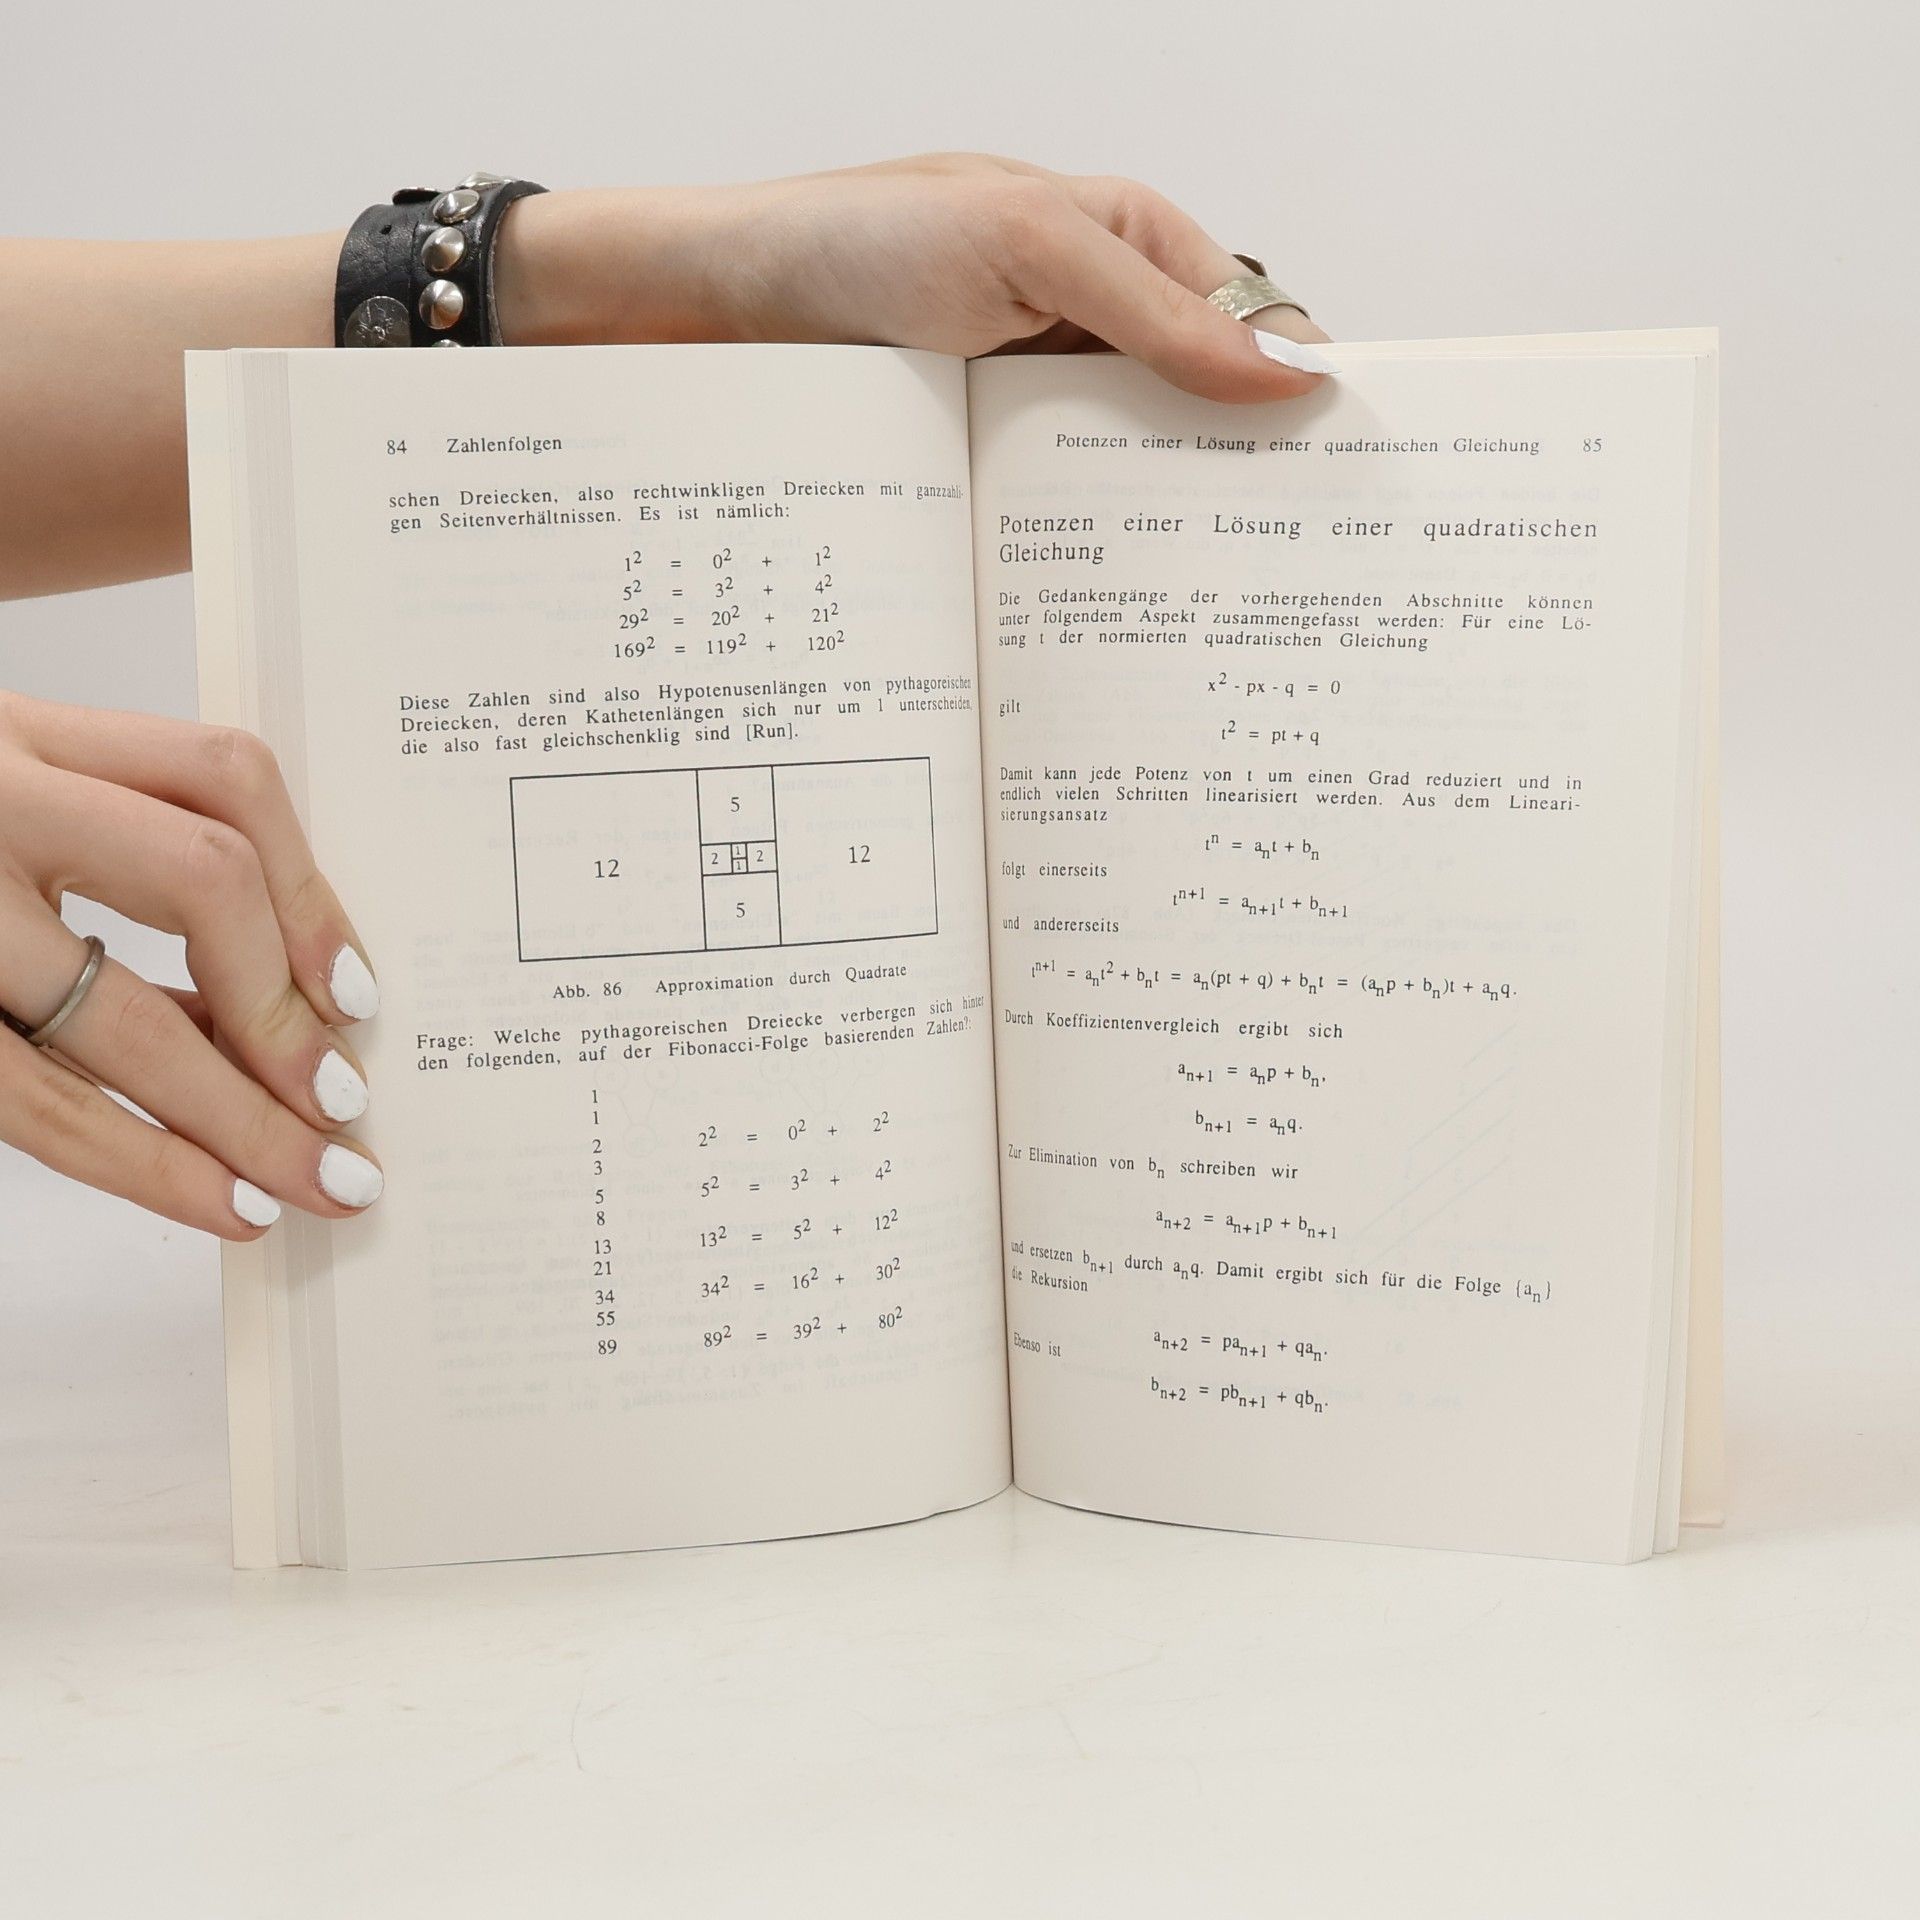 84 Zahlenfolgen
schen Dreiecken, also rechtwinkligen Dreiecken mit ganzzahli-
gen Seitenverhältnissen. Es ist nämlich:
1² = 0² + 1²
5² = 3² + 4²
29² = 20² + 21²
169² = 119² + 120²
Diese Zahlen sind also Hypotenusenlängen von pythagoreischen
Dreiecken, deren Kathetenlängen sich nur um 1 unterscheiden,
die also fast gleichschenklig sind [Run].
5
12
2
1
1
2
12
5
Abb. 86 Approximation durch Quadrate
Frage: Welche pythagoreischen Dreiecke verbergen sich hinter
den folgenden, auf der Fibonacci-Folge basierenden Zahlen?:
1
1
2 2² = 0² + 2²
3
5 5² = 3² + 4²
8
13 13² = 5² + 12²
21
34 34² = 16² + 30²
55
89 89² = 39² + 80²
Potenzen einer Lösung einer quadratischen Gleichung 85
Potenzen einer Lösung einer quadratischen
Gleichung
Die Gedankengänge der vorhergehenden Abschnitte können
unter folgendem Aspekt zusammengefasst werden: Für eine Lö-
sung t der normierten quadratischen Gleichung
x² - px - q = 0
gilt
t² = pt + q
Damit kann jede Potenz von t um einen Grad reduziert und in
endlich vielen Schritten linearisiert werden. Aus dem Lineari-
sierungsansatz
tⁿ = aₙt + bₙ
folgt einerseits
tⁿ⁺¹ = aₙ₊₁t + bₙ₊₁
und andererseits
tⁿ⁺¹ = aₙt² + bₙt = aₙ(pt + q) + bₙt = (aₙp + bₙ)t + aₙq.
Durch Koeffizientenvergleich ergibt sich
aₙ₊₁ = aₙp + bₙ,
bₙ₊₁ = aₙq.
Zur Elimination von bₙ schreiben wir
aₙ₊₂ = aₙ₊₁p + bₙ₊₁
und ersetzen bₙ₊₁ durch aₙq. Damit ergibt sich für die Folge {aₙ}
die Rekursion
aₙ₊₂ = paₙ₊₁ + qaₙ.
Ebenso ist
bₙ₊₂ = pbₙ₊₁ + qbₙ.